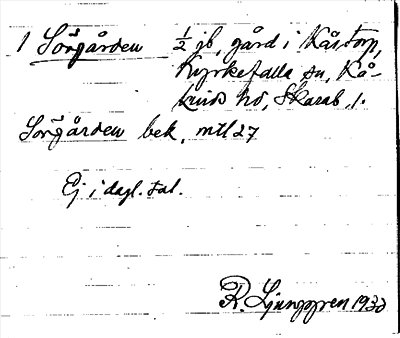 1 Sörgården ½ jb, gård i Kåstorp,
Kyrkefalla sn, Kå-
kinds hd, Skarab. l.
Sörgården bek. mtl 27
Ej i dagl. tal.
R. Ljunggren 1930